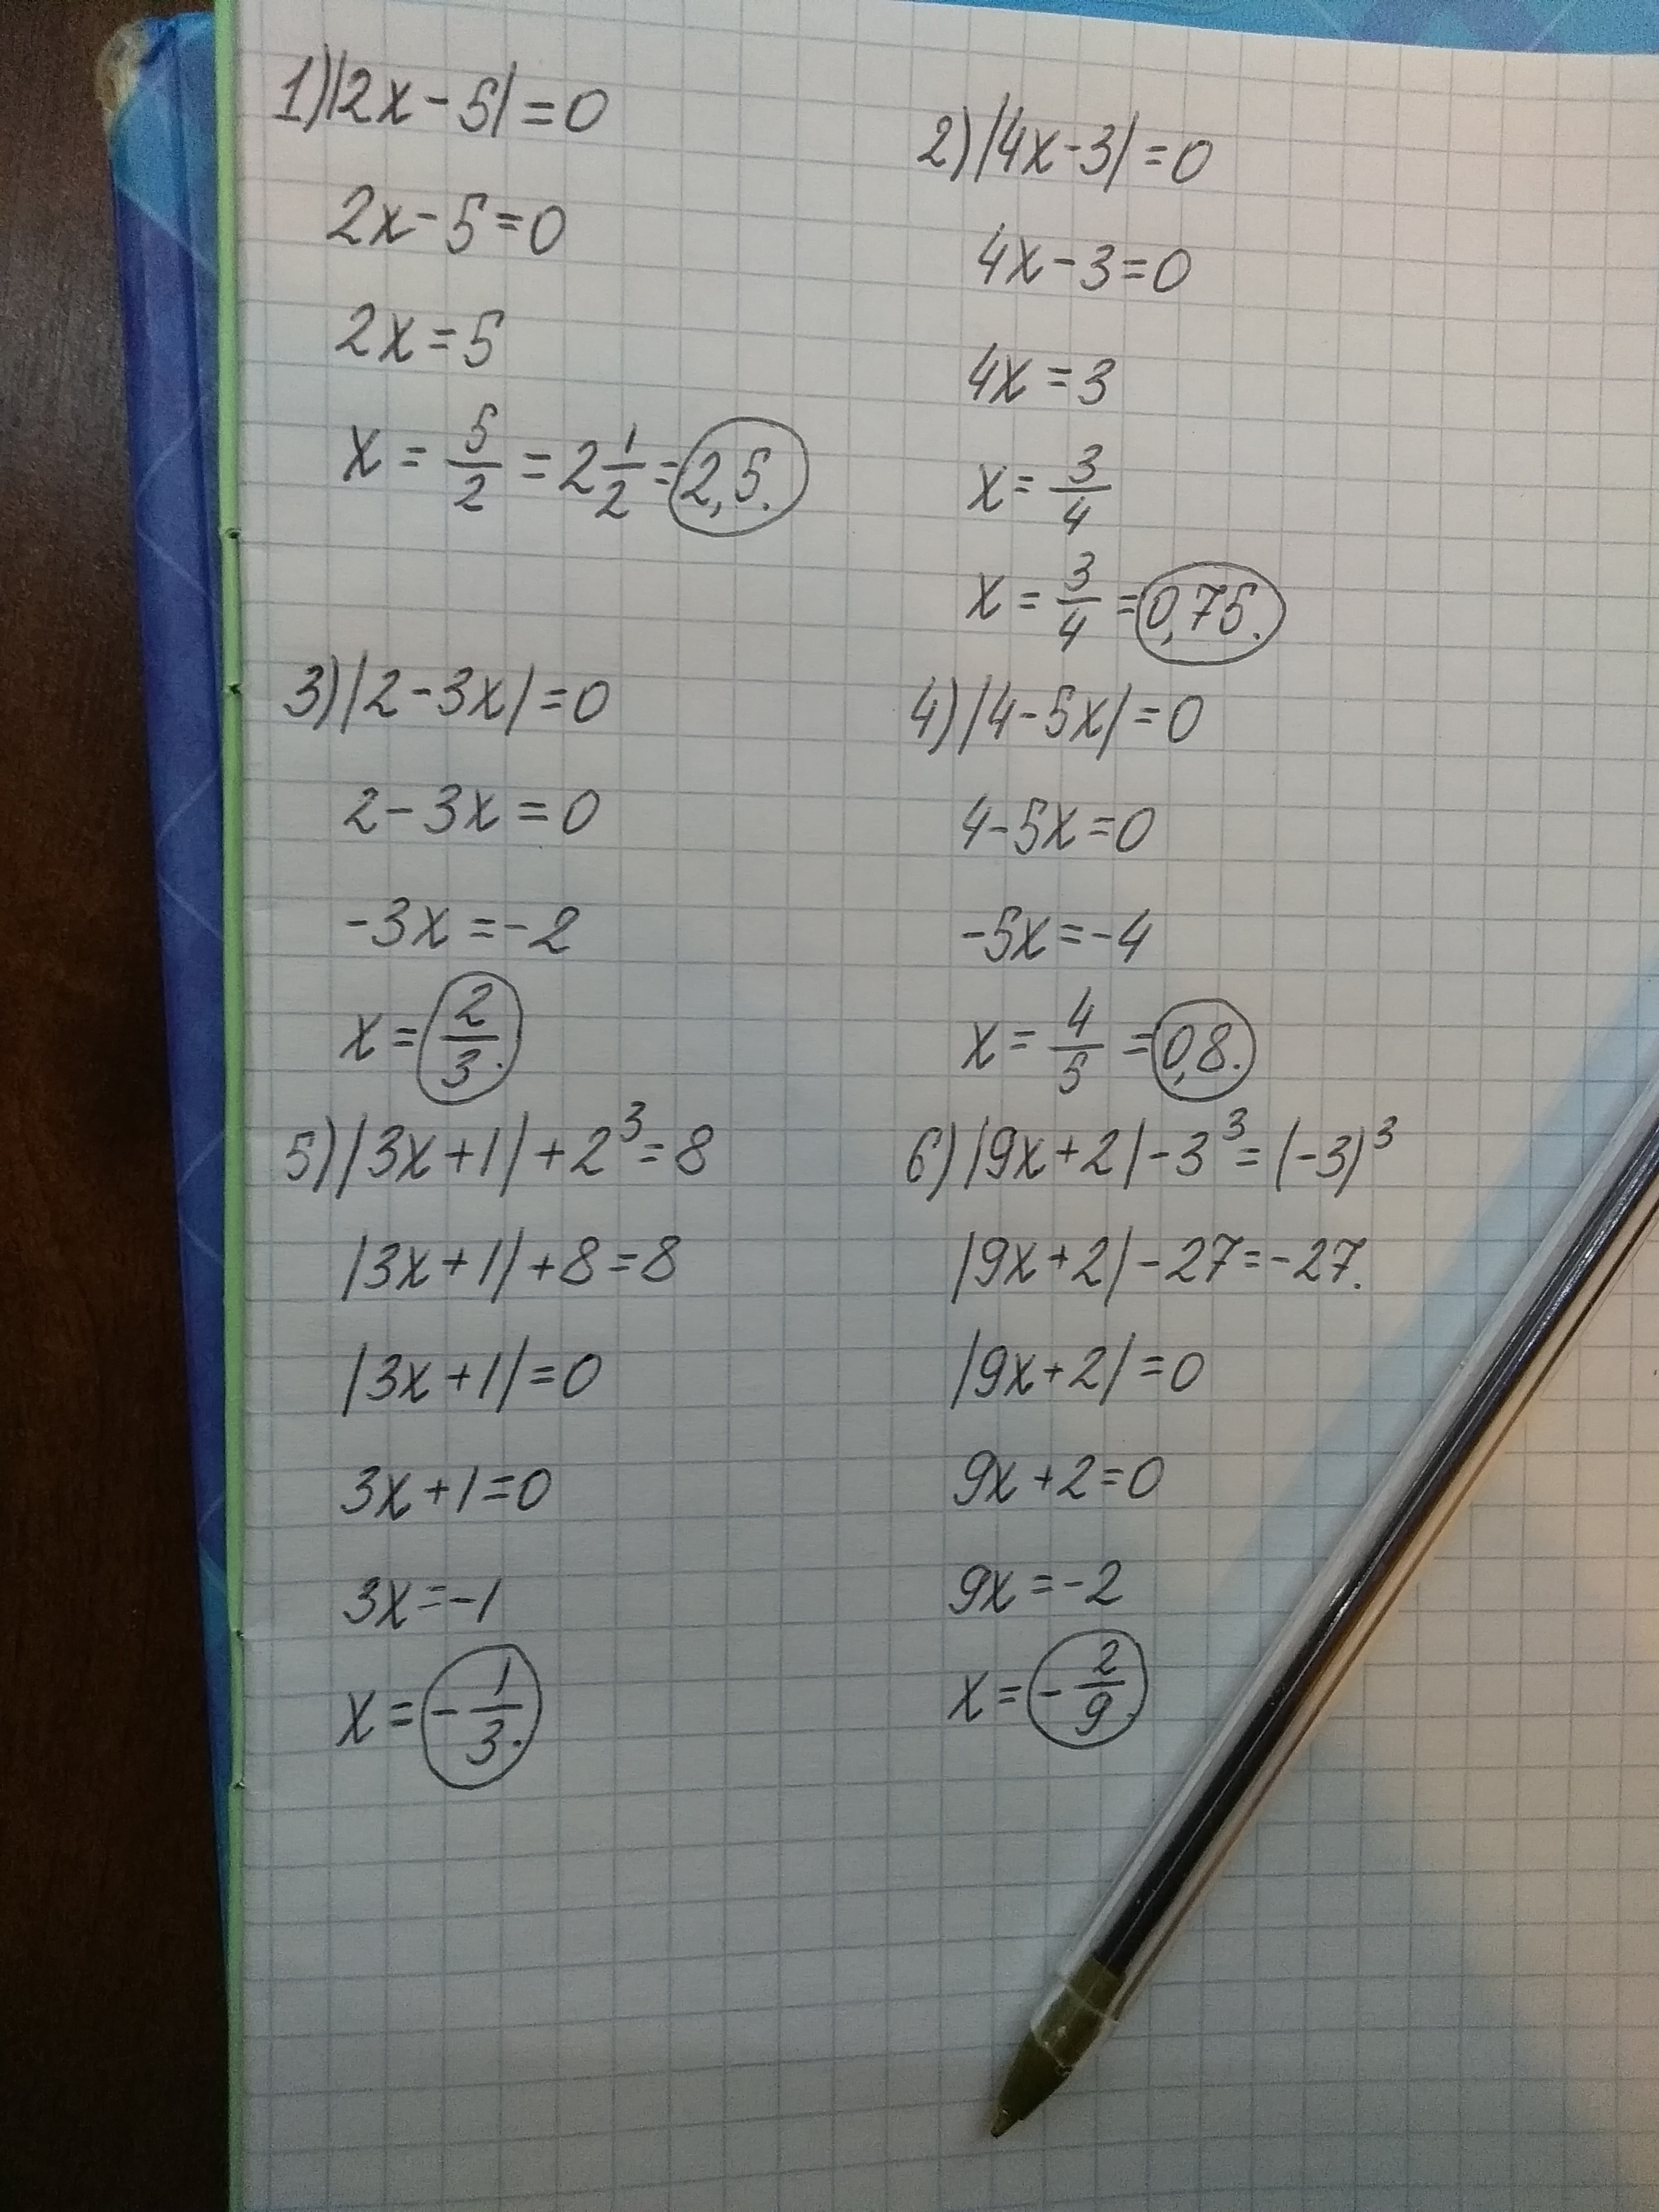 1) |2x - 5| = 0
2x - 5 = 0
2x = 5
x = 5/2 = 2 1/2 = 2,5.
2) |4x - 3| = 0
4x - 3 = 0
4x = 3
x = 3/4
x = 3/4 = 0,75.
3) |2 - 3x| = 0
2 - 3x = 0
-3x = -2
x = 2/3.
4) |4 - 5x| = 0
4 - 5x = 0
-5x = -4
x = 4/5 = 0,8.
5) |3x + 1| + 2³ = 8
|3x + 1| + 8 = 8
|3x + 1| = 0
3x + 1 = 0
3x = -1
x = -1/3.
6) |9x + 2| - 3³ = (-3)³
|9x + 2| - 27 = -27.
|9x + 2| = 0
9x + 2 = 0
9x = -2
x = -2/9.